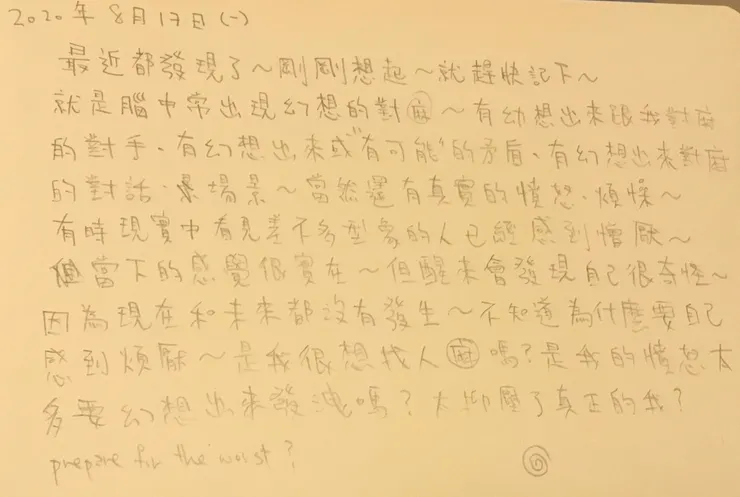 2020年8月17日(一)
最近都發現了～剛剛想起～就趕快記下～
就是腦中常出現幻想的對麻～有幻想出來跟我對麻
的對手、有幻想出來或"有可能"的矛盾、有幻想出來對麻
的對話、場景～當然還有真實的憤怒、煩悶～
有時現實中看見差不多型象的人已經感到憎厭～
當下的感覺很實在～但醒來會發現自己很奇怪～
因為現在和未來都沒有發生～不知道為什麼要自己
感到煩厭～是我很想找人麻嗎？是我的憤怒太
多要幻想出來發洩嗎？太抑壓了真正的我？
prepare for the worst?